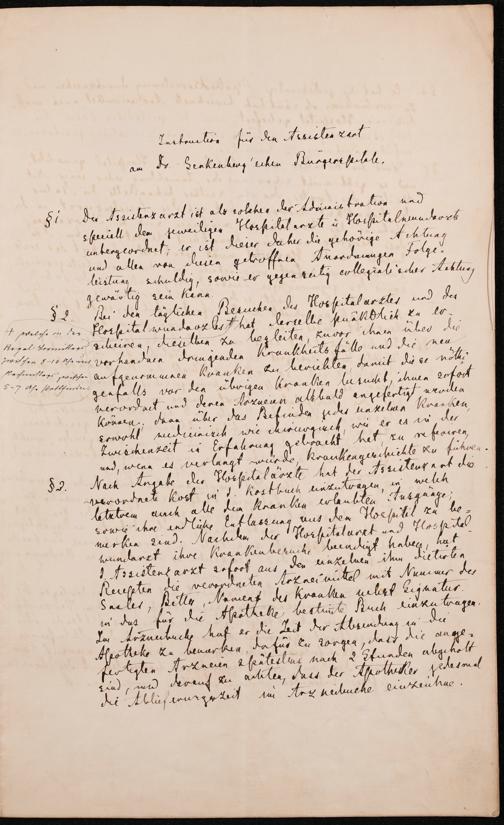 Instruction für den Assistenzarzt
am Dr. Senkenberg'schen Bürgerspitale.
§ 1. Der Assistenzarzt ist als solcher der Administration und
speciell dem jeweiligen Hospitalarzte u. Hospitalwundarzte
untergeordnet; er ist dieser daher die gehörige Achtung
und allen von diesen getroffnen Anordnungen Folge-
leistung schuldig, sowie er gegenseitig collegialischer Achtung
gewärtig sein kann.
§ 2. Bei den täglichen Besuchen des Hospitalarztes und des
Hospitalwundarztes + hat derselbe pünktlich zu er-
scheinen, dieselben zu begleiten, zuvor ihnen über die
vorhandenen dringenden Krankheitsfälle und die neu
aufgenommenen Kranken zu berichten, damit die er nöthi-
genfalls vor den übrigen Kranken besucht, ihnen sofort
verordnet und deren Arzneien alsbald angefertigt werden
können; dann über das Befinden jedes einzelnen Kranken,
sowohl medicinisch wie chirurgisch, wie er es in der
Zwischenzeit in Erfahrung gebracht hat, zu referiren,
und, wenn es verlangt würde, Krankengeschichte zu führen.
+ welche in der
Regel Vormittags
zwischen 8-10 Uhr und
Nachmittags zwischen
5-7 Uhr stattfinden
§ 2. Nach Angabe der Hospitalärzte hat der Assistenzarzt die
verordnete Kost in d. Kostbuch einzutragen, in welch
letzterm auch alle den Kranken erlaubten Ausgänge,
sowie ihre endliche Entlassung aus dem Hospital zu be-
merken sind. Nachdem der Hospitalarzt und Hospital-
wundarzt ihre Krankenbesuche beendigt haben, hat
d. Assistenzarzt sofort aus den einzelnen ihm dictirten
Recepten die verordneten Arzneimittel mit Nummer des
Saales, Bettes, Namens des Kranken nebst Signatur
in das für die Apotheke bestimte Buch einzutragen.
Im Arzneibuche hat er die Zeit der Absendung in die
Apotheke zu bemerken, dafür zu sorgen, dass die ange-
fertigten Arzneien spätestens nach 2 Stunden abgeholt
sind, und darauf zu achten, dass der Apotheker jedesmal
die Ablieferungszeit im Arzneibuche einzeichne.